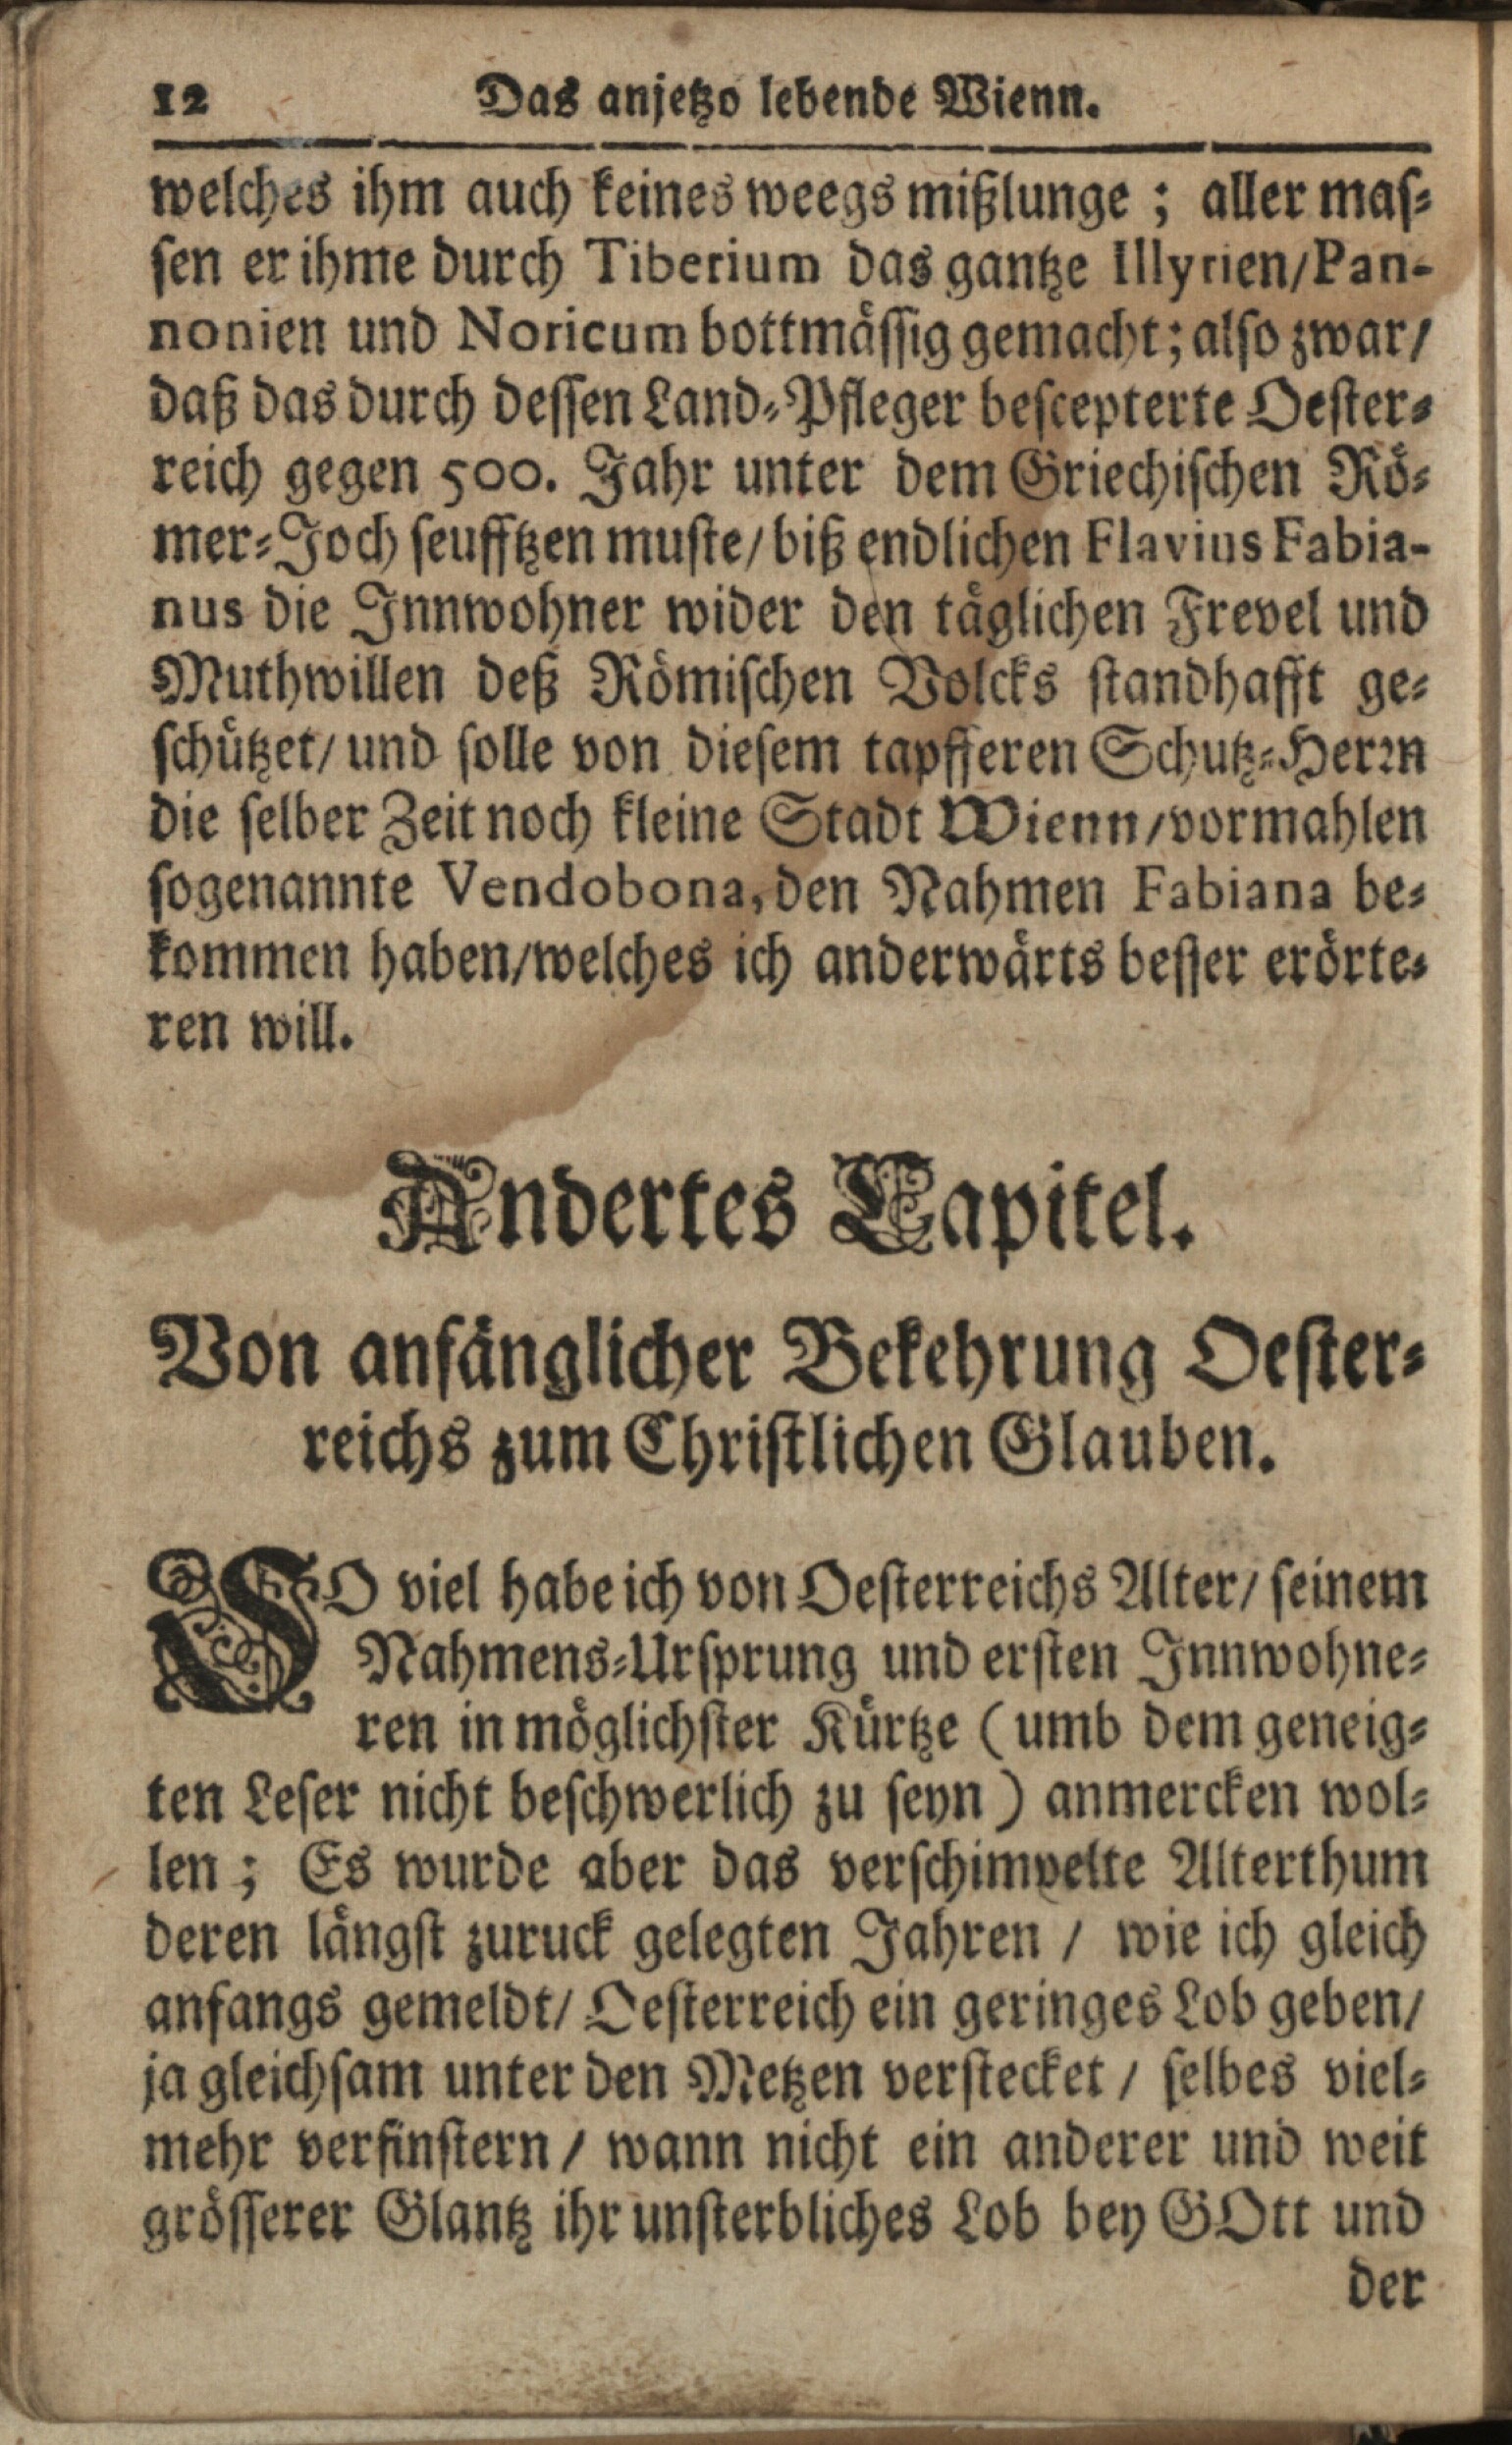 12 Das anjetzo lebende Wienn.
welches ihm auch keines weegs mißlunge ; aller mas-
sen er ihme durch Tiberium das gantze Illyrien/Pan-
nonien und Noricum bottmässig gemacht; also zwar/
daß das durch dessen Land-Pfleger bescepterte Oester-
reich gegen 500. Jahr unter dem Griechischen Rö-
mer-Joch seufftzen muste/ biß endlichen Flavius Fabia-
nus die Innwohner wider den täglichen Frevel und
Muthwillen deß Römischen Volcks standhafft ge-
schützet/ und solle von diesem tapfferen Schutz-Herrn
die selber Zeit noch kleine Stadt Wienn/vormahlen
sogenannte Vendobona, den Nahmen Fabiana be-
kommen haben/welches ich anderwärts besser erörte-
ren will.
Andertes Capitel.
Von anfänglicher Bekehrung Oester-
reichs zum Christlichen Glauben.
SO viel habe ich von Oesterreichs Alter/ seinem
Nahmens-Ursprung und ersten Innwohne-
ren in möglichster Kürtze ( umb dem geneig-
ten Leser nicht beschwerlich zu seyn ) anmercken wol-
len ; Es wurde aber das verschimpelte Alterthum
deren längst zuruck gelegten Jahren / wie ich gleich
anfangs gemeldt/ Oesterreich ein geringes Lob geben/
ja gleichsam unter den Metzen verstecket / selbes viel-
mehr verfinstern / wann nicht ein anderer und weit
grösserer Glantz ihr unsterbliches Lob bey GOtt und
der